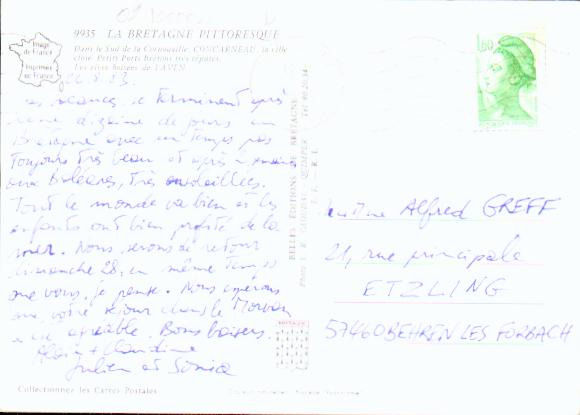 9935 LA BRETAGNE PITTORESQUE
Dans le Sud de la Cornouaille, CONCARNEAU, la ville
close. Petits Ports Bretons très réputés.
Les rives boisées de l'AVEN.
Image
de France
Imprimée
en France
1,80
26.8.83.
Les vacances se terminent après
une dizaine de jours en
Bretagne avec un temps pas
toujours très beau et après
aux Baléares, très ensoleillées.
Tout le monde va bien et les
enfants ont bien profité de la
mer. Nous serons de retour
dimanche 28, en même temps
que vous, je pense. Nous espérons
que votre séjour dans le Morvan
a été agréable. Bons baisers.
Alain + Claudine
Julien et Sonia
Alfred GREFF
21, rue principale
ETZLING
57460 BEHREN LES FORBACH
Collectionnez les Cartes Postales